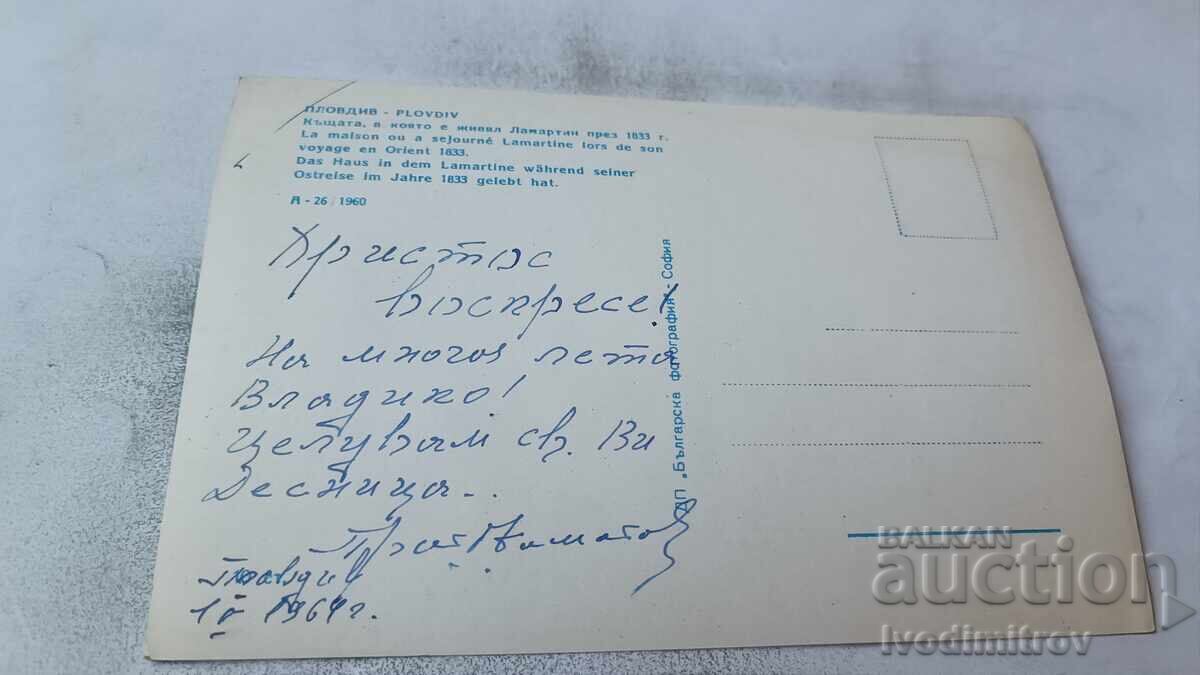 ПЛОВДИВ - PLOVDIV
Къщата, в която е живял Ламартин през 1833 г.
La maison ou a sejourné Lamartine lors de son
voyage en Orient 1833.
Das Haus in dem Lamartine während seiner
Ostreise im Jahre 1833 gelebt hat.
А - 26 / 1960
Христос
воскресе!
На многая лета
Владико!
Целувам св. Ви
Десница..
Прот.
Пловдив
1964 г.
ДП „Българска фотография" - София
BALKAN
auction
Ivodimitrov